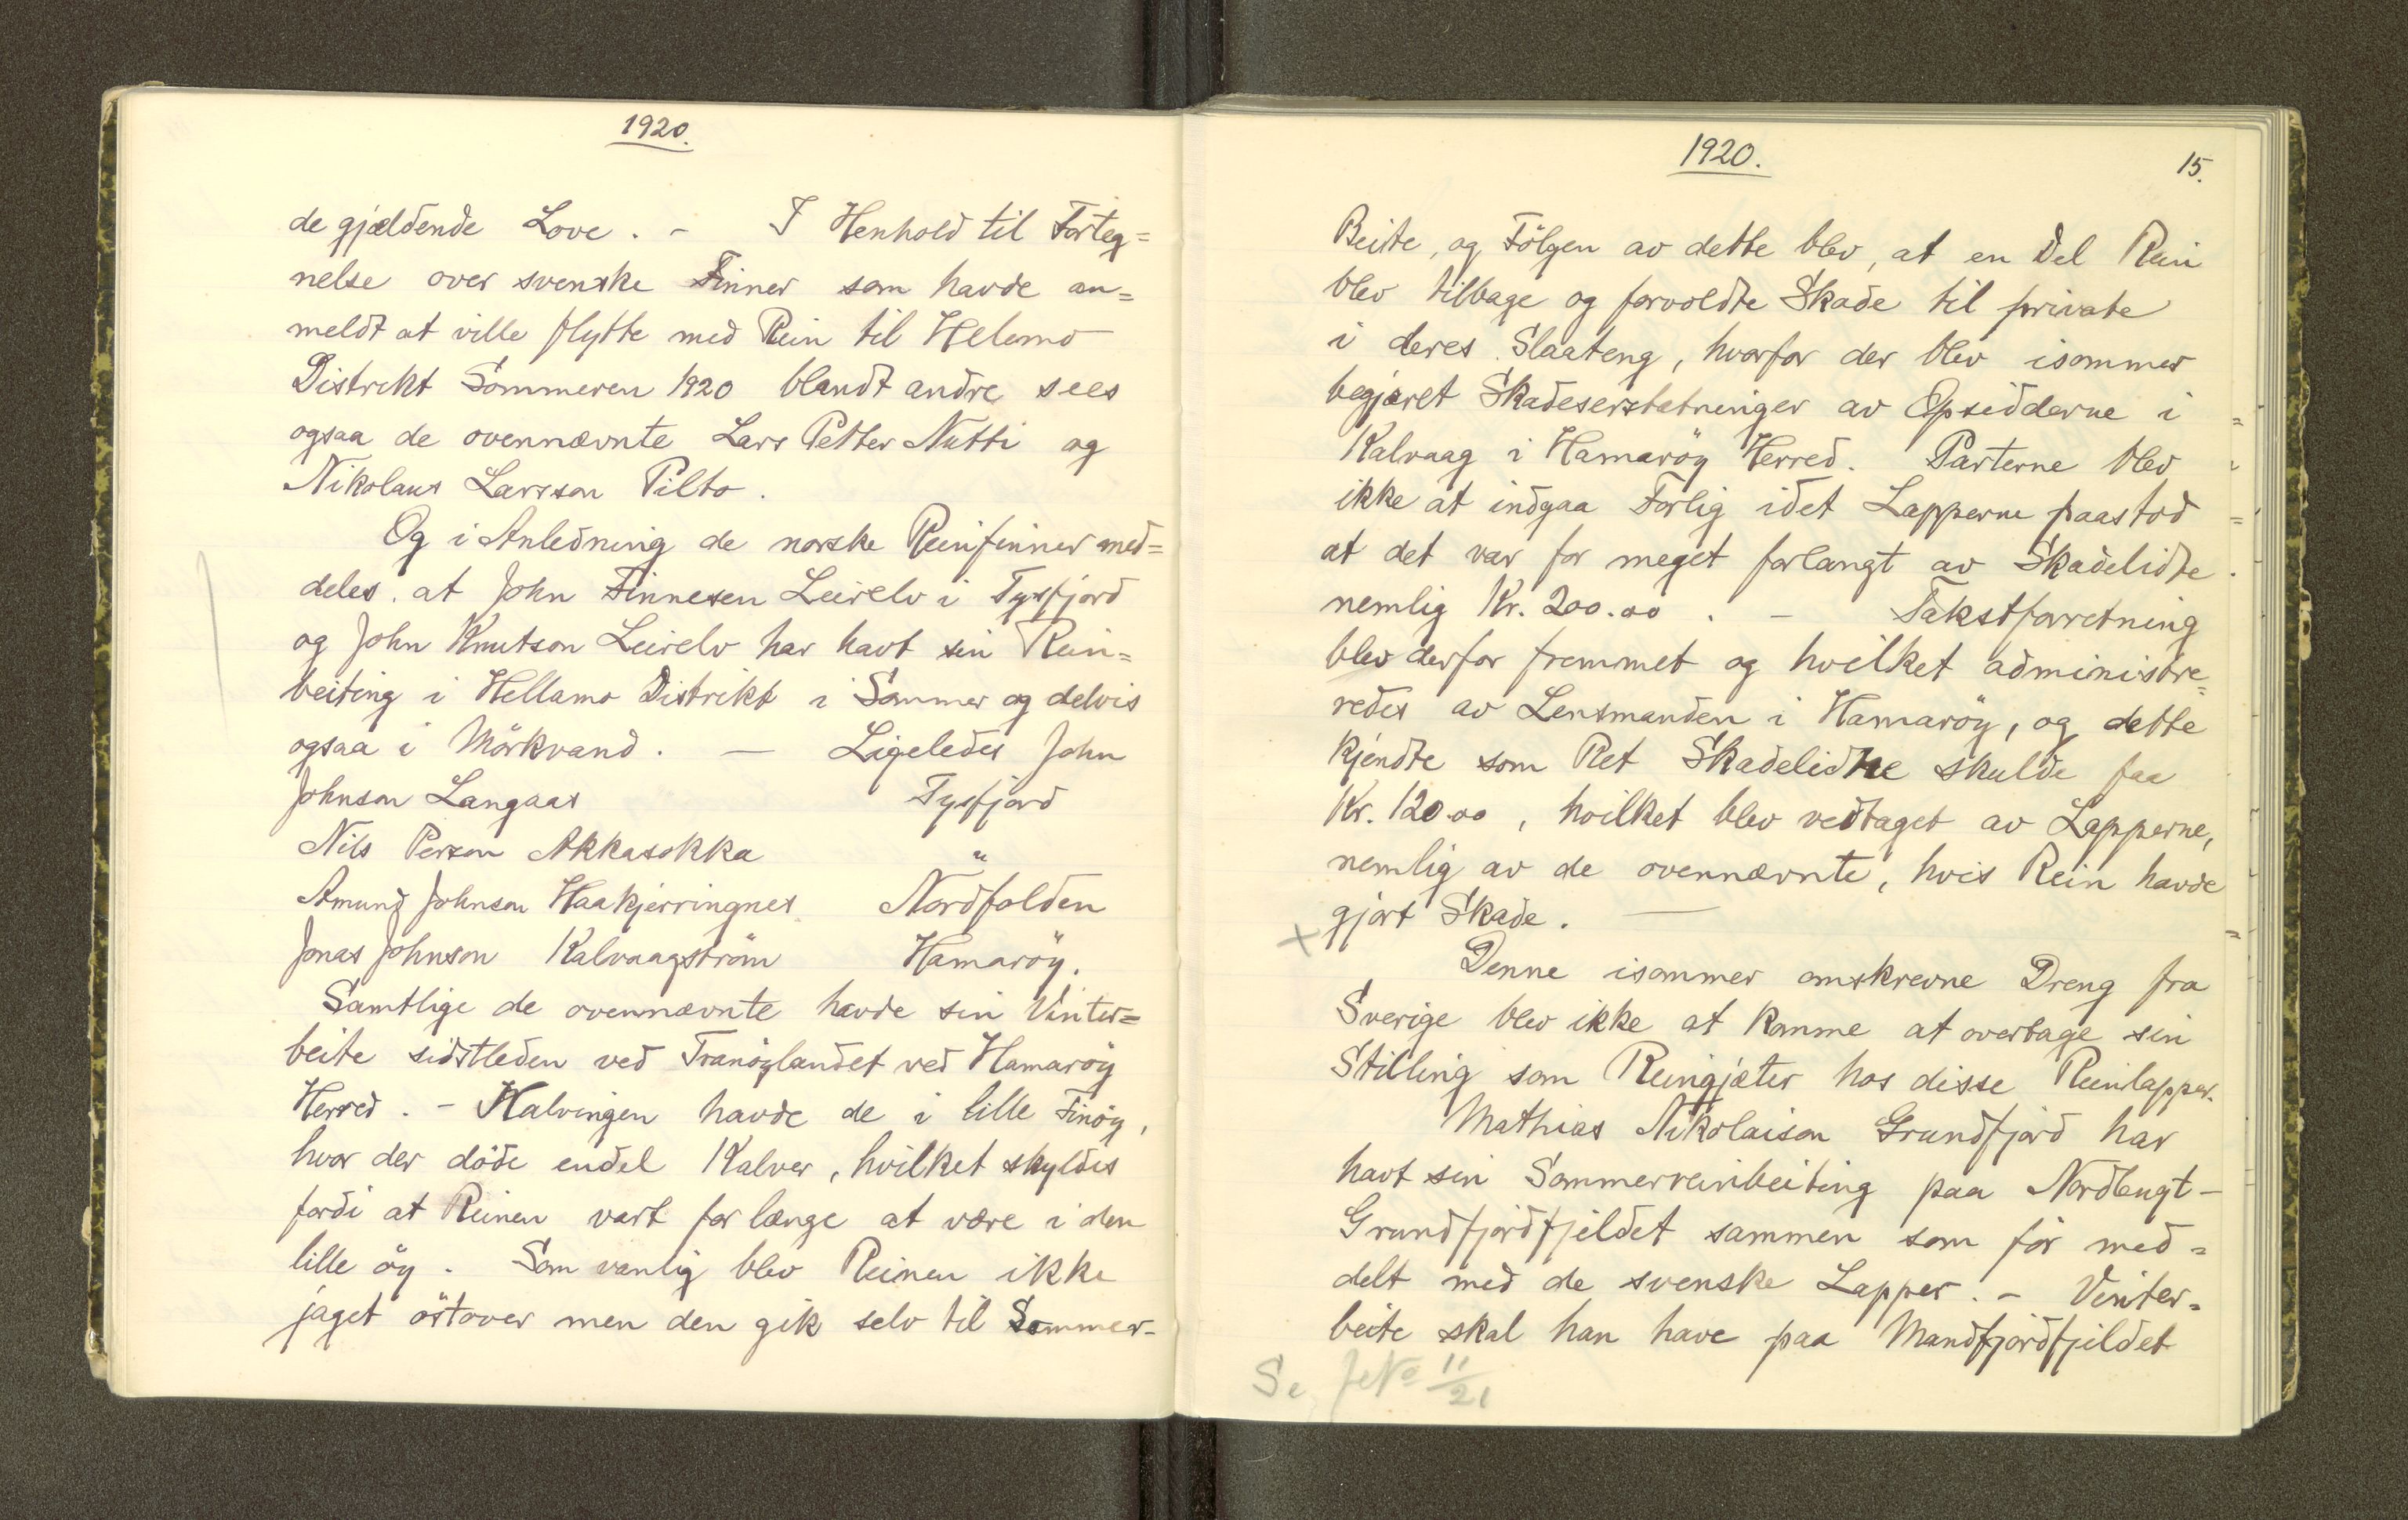 1920.
de gjældende Love. - I Henhold til Forteg=
nelse over svenske Finner som havde an=
meldt at ville flytte med Rein til Helemo
Distrikt Sommeren 1920 blandt andre sees
ogsaa de ovennævnte Lars Petter Nutti og
Nikolaus Larsson Pilto.
Og i Anledning de norske Reinfinner med=
deles. at John Finnesen Leirelv i Tysfjord
og John Knutson Leirelv har havt sin Rein=
beiting i Hellamo Distrikt i Sommer og delvis
ogsaa i Mörkvand. — Ligeledes John
Johnson Langaas Tysfjord
Nils Person Akkasokka "
Amund Johnson Haakjerringnes Nordfolden
Jonas Johnson Kalvaagström Hamaröy.
Samtlige de ovennævnte havde sin Vinter=
beite sidstleden ved Tranöylandet ved Hamaröy
Herred. - Kalvingen havde de i lille Finöy,
hvor der döde endel Kalver, hvilket skyldes
fordi at Reinen vart for længe at være i den
lille öy. Som vanlig blev Reinen ikke
jaget östover men den gik selv til Sommer-
1920.
15.
Beite, og Fölgen av dette blev, at en Del Rein
blev tilbage og forvoldte Skade til private
i deres Slaateng, hvorfor der blev isommer
begjæret Skadeserstatninger av Opsidderne i
Kalvaag i Hamaröy Herred. Parterne blev
ikke at indgaa Forlig idet Lapperne paastod
at det var for meget forlangt av Skadelidte
nemlig Kr. 200.00. - Takstforretning
blev derfor fremmet og hvilket administre=
redes av Lensmanden i Hamaröy, og dette
kjendte som Ret Skadelidte skulde faa
Kr. 120.00, hvilket blev vedtaget av Lapperne,
nemlig av de ovennævnte, hvis Rein havde
x gjort Skade. —
Denne isommer omskrevne Dreng fra
Sverige blev ikke at komme at overtage sin
Stilling som Reingjæter hos disse Reinlapper.
Mathias Nikolaison Grundfjord har
havt sin Sommerreinbeiting paa Nordbugt-
Grundfjordfjeldet sammen som för med=
delt med de svenske Lapper. - Vinter=
beite skal han have paa Mandfjordfjeldet
Se 11/21